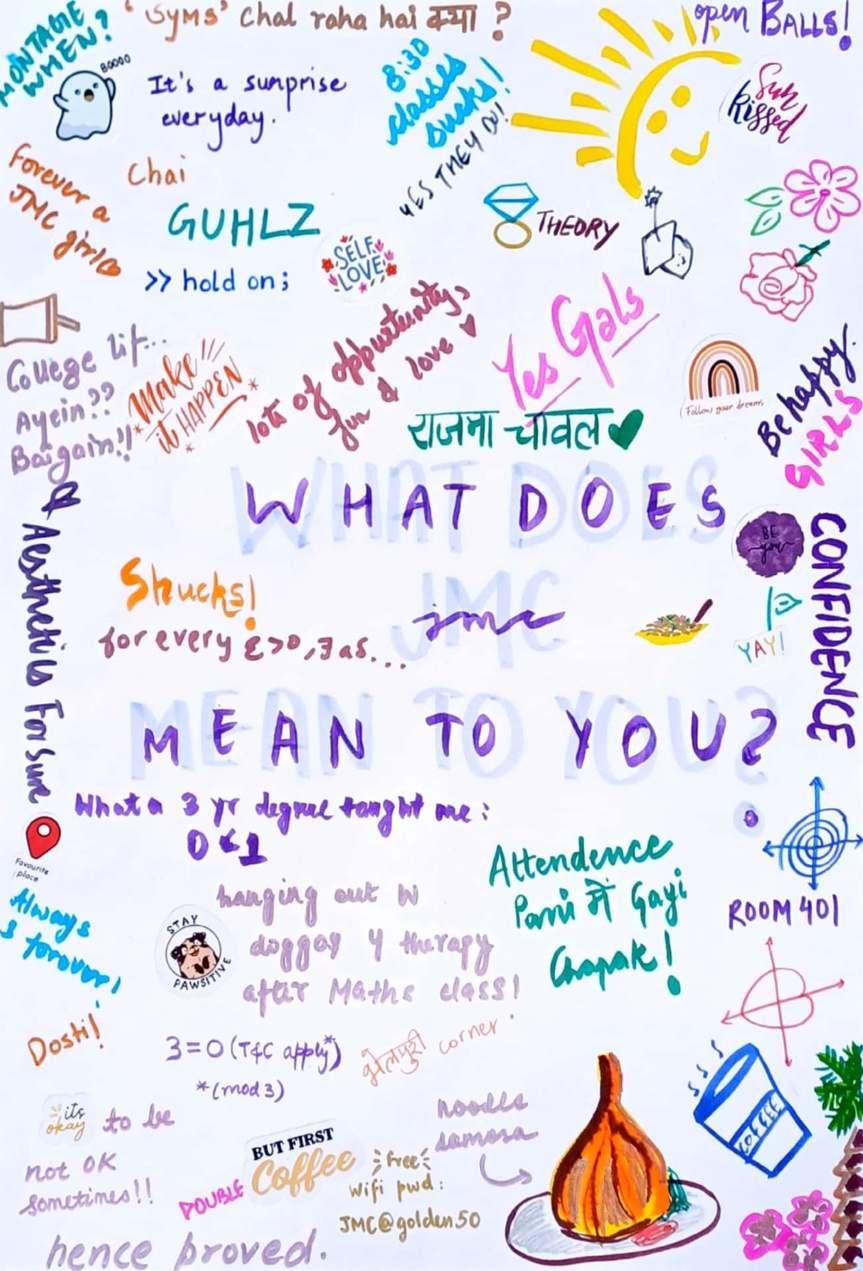 MONTAGE
WHEN?
'SYMS' Chal raha hai क्या ?
open BALLS!
BOOOO
It's a surprise
everyday.
8:30
classes
sucks!
YES THEY DO!
Sun
kissed
Forever a
JMC girl
Chai
GUHLZ
>> hold on;
SELF
LOVE
THEORY
College lit...
Ayein??
Bargain!!
Make
it HAPPEN
lots of oppurtunity,
fun & love
Yes Gals
राजमा चावल
Follow your dreams
Be happy.
GIRLS
& Aesthetics For Sure
WHAT DOES
JMC
MEAN TO YOU?
BE
you
CONFIDENCE
Shucks!
for every ε>0, ∃ a δ...
jmc
YAY!
What a 3 yr degree taught me :
0<1
Favourite
place
Always
& forever!
hanging out w
doggos 4 therapy
after Maths class!
STAY
PAWSITIVE
Attendence
Pani में Gayi
Chapak!
ROOM 401
Dosti!
3=0 (T&C apply*)
*(mod 3)
भेलपुरी corner!
its
okay to be
not OK
sometimes!!
BUT FIRST
Coffee
DOUBLE
Free
Wifi pwd:
JMC@golden50
noodle
samosa
COFFEE
hence proved.